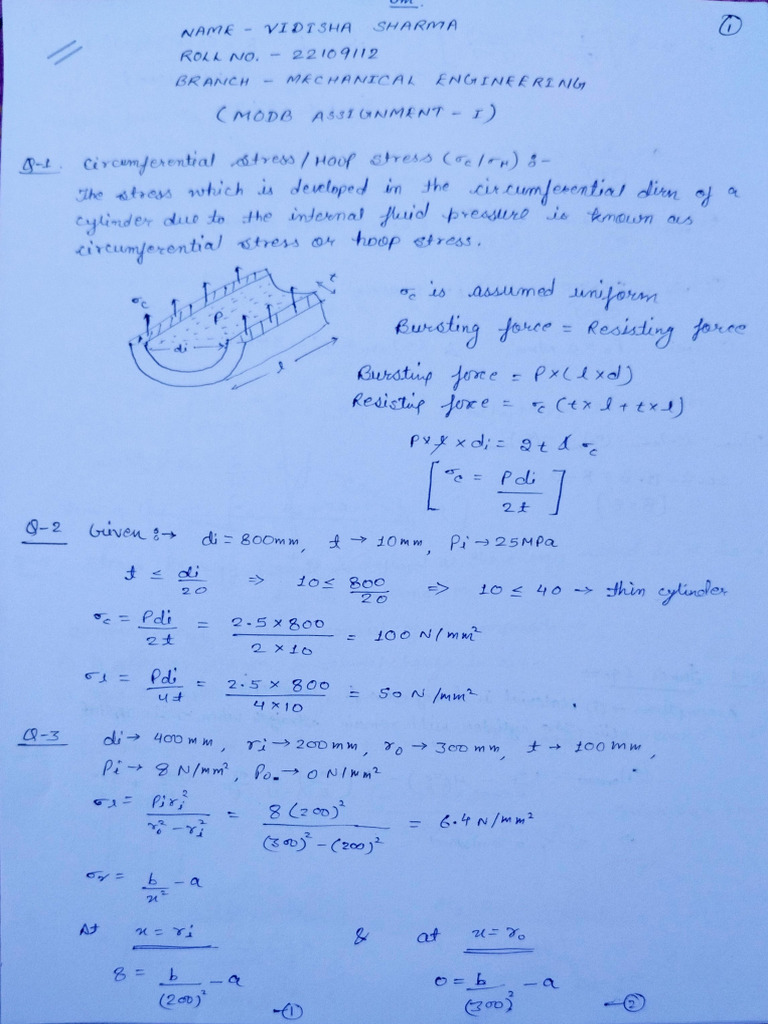 Om
①
NAME - VIDISHA SHARMA
ROLL NO. - 22109112
BRANCH - MECHANICAL ENGINEERING
(MODB ASSIGNMENT - I)
Q-1. Circumferential stress/Hoop stress (σc/σH) :-
The stress which is developed in the circumferential dirn of a
cylinder due to the internal fluid pressure is known as
circumferential stress or hoop stress.
σc
P
t
di
l
σc is assumed uniform
Bursting force = Resisting force
Bursting force = P×(l×d)
Resisting force = σc (t×l + t×l)
P×l×di = 2t l σc
[σc = Pdi / 2t]
Q-2 Given :→ di = 800mm, t → 10mm, Pi → 25MPa
t ≤ di/20 ⇒ 10 ≤ 800/20 ⇒ 10 ≤ 40 → thin cylinder
σc = Pdi/2t = 2.5×800 / 2×10 = 100 N/mm²
σl = Pdi/4t = 2.5 × 800 / 4×10 = 50 N/mm²
Q-3 di → 400mm, ri → 200mm, ro → 300mm, t → 100mm,
Pi → 8 N/mm², Po → 0 N/mm²
σl = Piri² / ro² - ri² = 8(200)² / (300)² - (200)² = 6.4 N/mm²
σr = b/x² - a
At x = ri & at x = ro
8 = b/(200)² - a —① 0 = b/(300)² - a —②